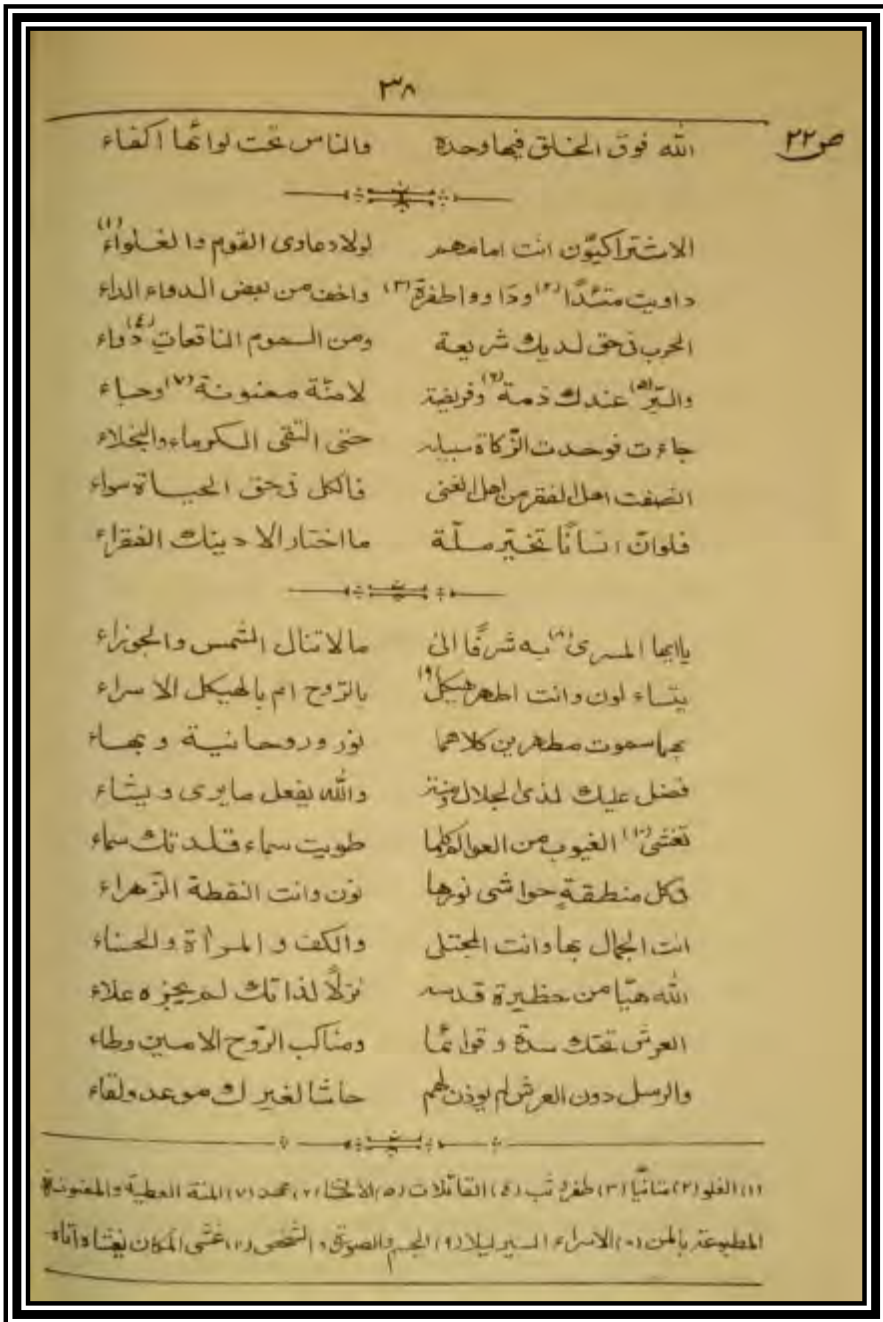 ٣٨
ص ٢٢
الله فوق الخلق فيها وحده والناس تحت لوائها اكفاء
الاشتراكيّون انت امامهم لولا دعاوى القوم والغلواء (١)
داويت متئدًا (٢) وداووا طفرة (٣) واخف من بعض الدواء الداء
الحرب فى حق لديك شريعة ومن السموم الناقعات (٤) دواء
والبرّ (٥) عندك ذمة (٦) وفريضة لا منّة ممنونة (٧) وحباء
جاءت فوحدت الزّكاة سبيله حتى التقى الكرماء والبخلاء
انصفت اهل الفقر من اهل الغنى فالكل فى حق الحياة سواء
فلوانّ انسانًا تخيّر ملّة ما اختار الا دينك الفقراء
ياايها المسرى (٨) به شرفًا الى مالا تنال الشمس والجوزاء
يتساءلون وانت اطهر هيكل (٩) بالرّوح ام بالهيكل الاسراء
بهما سموت مطهرين كلاهما نور وروحانية وبهاء
فضل عليك لذى الجلال ومنة والله يفعل ما يرى ويشاء
تغشى (١٠) الغيوب من العوالم كلما طويت سماء قلدتك سماء
فى كل منطقةٍ حواشى نورها نون وانت النقطة الزّهراء
انت الجمال بها وانت المجتلى والكف والمرأة والحسناء
الله هيّا من حظيرة قدسه نزلًا لذاتك لم يجزه علاء
العرش تحتك سدة وقوائمًا ومناكب الرّوح الامين وطاء
والرسل دون العرش لم يوذن لهم حاشا لغيرك موعد ولقاء
(١) الغلو (٢) متانيًا (٣) طفرة ثب (٤) القاتلات (٥) (٦) عهد (٧) المنة العطية والممنونة
المطبوعة بالمن (٨) الاسراء السير ليلا (٩) الجسم والصورة والشخص (١٠) غشى المكان يغشاه اتاه